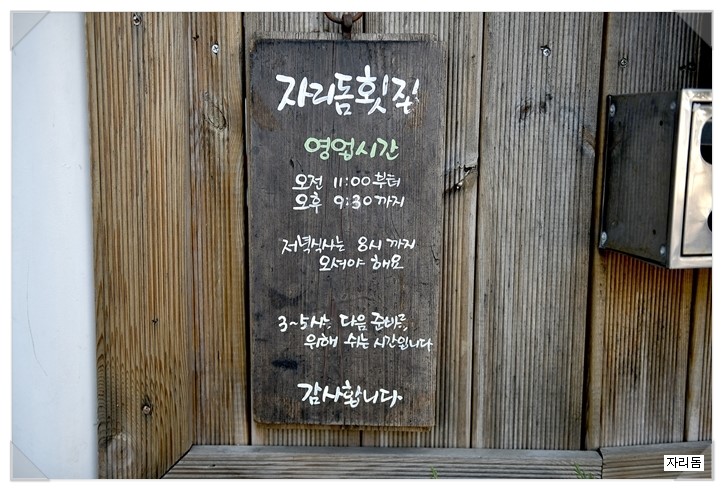 자리돔횟집
영업시간
오전 11:00부터
오후 9:30까지
저녁식사는 8시 까지
오셔야 해요
3~5시는 다음 준비를
위해 쉬는 시간입니다
감사합니다
자리돔